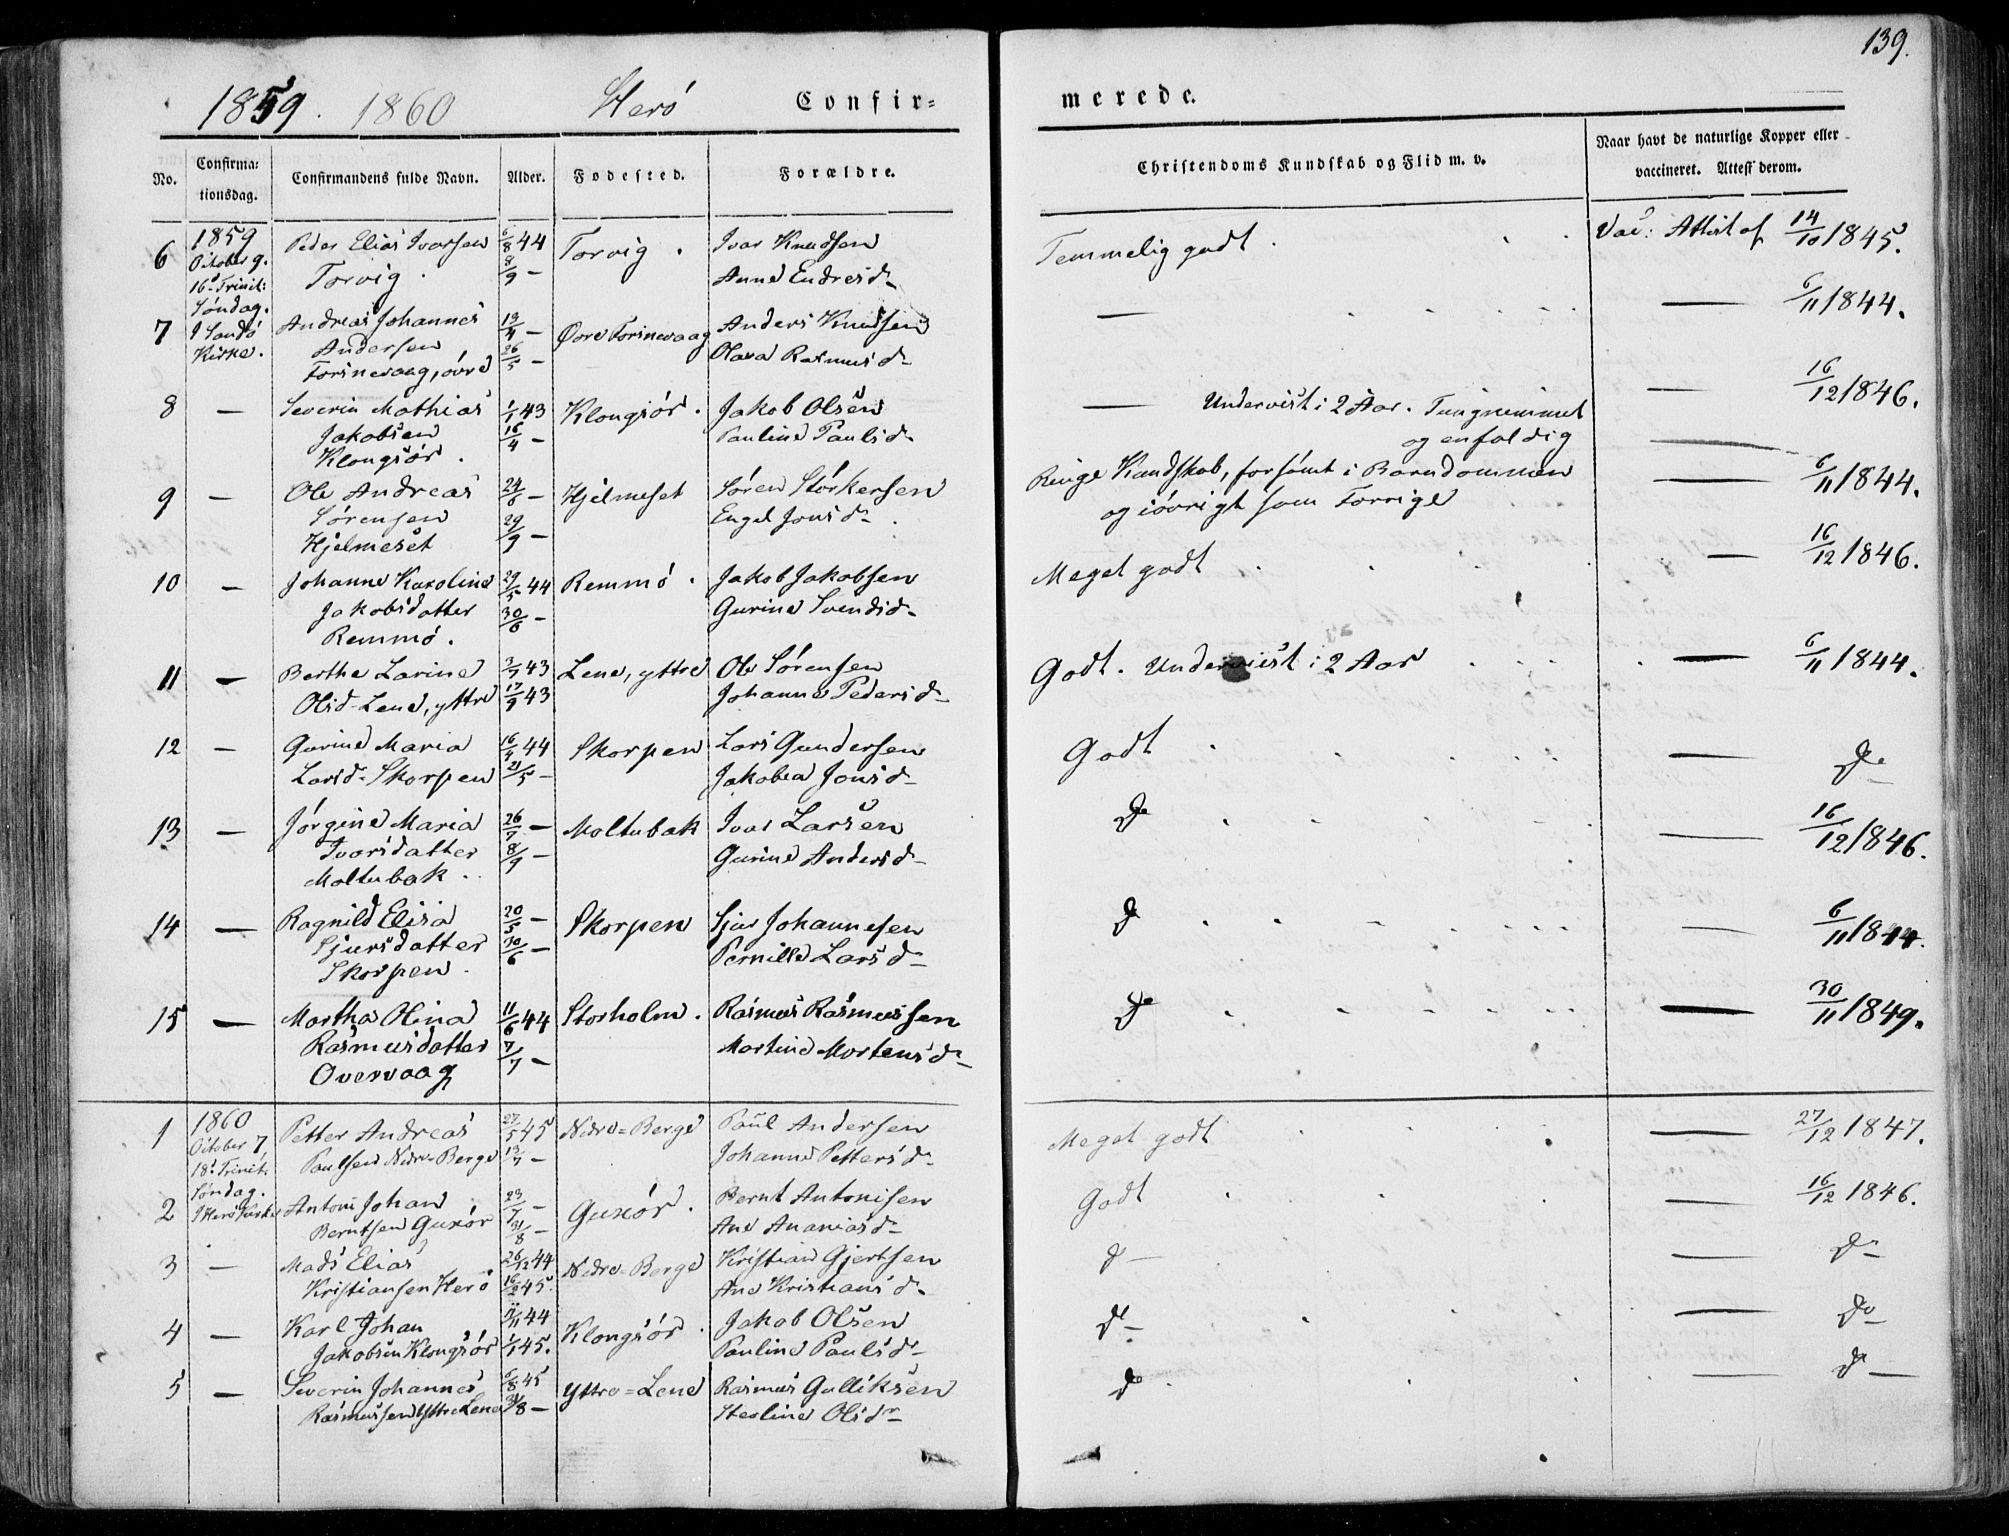 139.
1859. 1860 Herö Confir=
merede.
No. Confirma: tionsdag. Confirmandens fulde Navn. Alder. Fødested. Forældre. Christendoms Kundskab og Flid m. v. Naar havt de naturlige Kopper eller vaccineret. Attest derom.
6 1859 Peder Elias Ivarsen 6/8 44 Torvig. Ivar Knudsen Temmelig godt. Vac: Attest af 14/10 1845.
October 9. Torvig. 8/9 – Anne Endresd-
16d Trinit:
Søndag.
7 I Sandö Andreas Johannes 13/4 – Övre Torinevaag Anders Knudsen — — 6/11 1844.
Kirke. Andersen 26/5 – Olava Rasmusd-
Torinevaag, övre
8 — Severin Mathias 1/1 43 Klongsör. Jakob Olsen — Undervist i 2 Aar. Tungnemmet — 16/12 1846.
Jakobsen 16/4 – Pauline Paulsd- og enfoldig
Klongsör.
9 — Ole Andreas 24/6 – Hjelmeset Sören Störkersen Ringe Kundskab, forsömt i Barndommen — 6/11 1844.
Sörensen 29/9 – Engel Jonsd- og iövrigt som Forrige
Hjelmeset
10 — Johanne Karoline 29/5 44 Remmö. Jakob Jakobsen Meget godt — 16/12 1846.
Jakobsdatter 30/6 – Gurine Svendsd-
Remmö.
11 — Berthe Larine 3/7 43 Lene, yttre Ole Sörensen Godt. Undervist i 2 Aar — 6/11 1844.
Olsd- Lene, yttre 17/9 43 Johanne Pedersd-
12 — Gurine Maria 16/4 44 Skorpen Lars Gundersen Godt — Do
Larsd- Skorpen 21/5 – Jakobea Jonsd-
13 — Jörgine Maria 26/7 – Moltubak Ivar Larsen Do — 16/12 1846.
Ivarsdatter 8/9 – Gurine Andersd-
Moltubak.
14 — Ragnild Elisa 20/5 – Skorpen Sjur Johannesen Do — 6/11 1844.
Sjursdatter 30/6 – Pernille Larsd-
Skorpen.
15 — Martha Olina 11/6 44 Storholm. Rasmus Rasmussen Do — 30/11 1849.
Rasmusdatter 7/7 – Martine Mortensd-
Overvaag
1 1860 Petter Andreas 27/5 45 Nedre=Berge Paul Andersen Meget godt — 27/12 1847.
October 7 Paulsen Nedre-Berge 13/7 – Johanne Pettersd-
18d Trinit:
Søndag.
2 I Herö Kirke Antoni Johan 23/7 – Guxör. Bernt Antonisen Godt — 16/12 1846.
Berntsen Guxör 31/8 – Ane Ananiasd-
3 — Mads Elias 26/12 44 Nedre-Berge Kristian Gjertsen d — — Do
Kristiansen Herö 16/2 45. Ane Kristiansd-
4 — Karl Johan 11/11 44 Klongsör. Jakob Olsen Do — Do
Jakobsen Klongsör 1/1 45. Pauline Paulsd-
5 — Severin Johannes 6/8 45 Yttre=Lene Rasmus Gulliksen Do — Do
Rasmussen Yttre Lene 31/8 – Olsd-